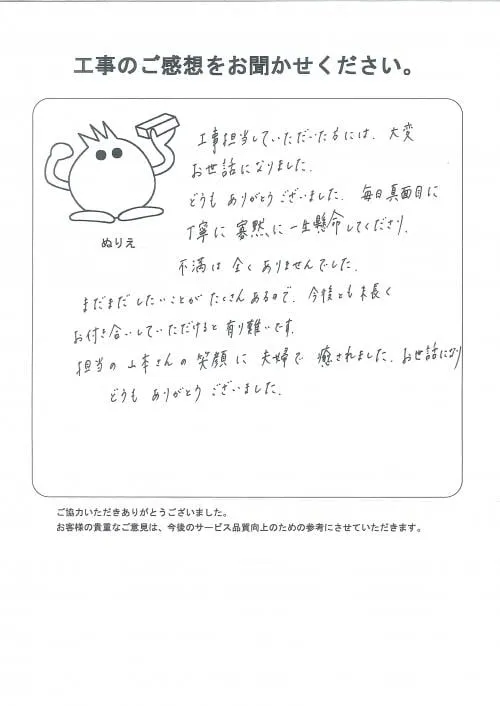 工事のご感想をお聞かせください。
工事担当していただいた方には、大変
お世話になりました。
どうも ありがとうございました。毎日真面目に
丁寧に 寡黙に 一生懸命してくださり、
不満は 全く ありませんでした。
まだまだ したいことが たくさん あるので、今後とも 末長く
お付き合いしていただけると 有り難いです。
担当の 山本さんの 笑顔に 夫婦で 癒されました。お世話になり
どうも ありがとう ございました。
ぬりえ
ご協力いただきありがとうございました。
お客様の貴重なご意見は、今後のサービス品質向上のための参考にさせていただきます。